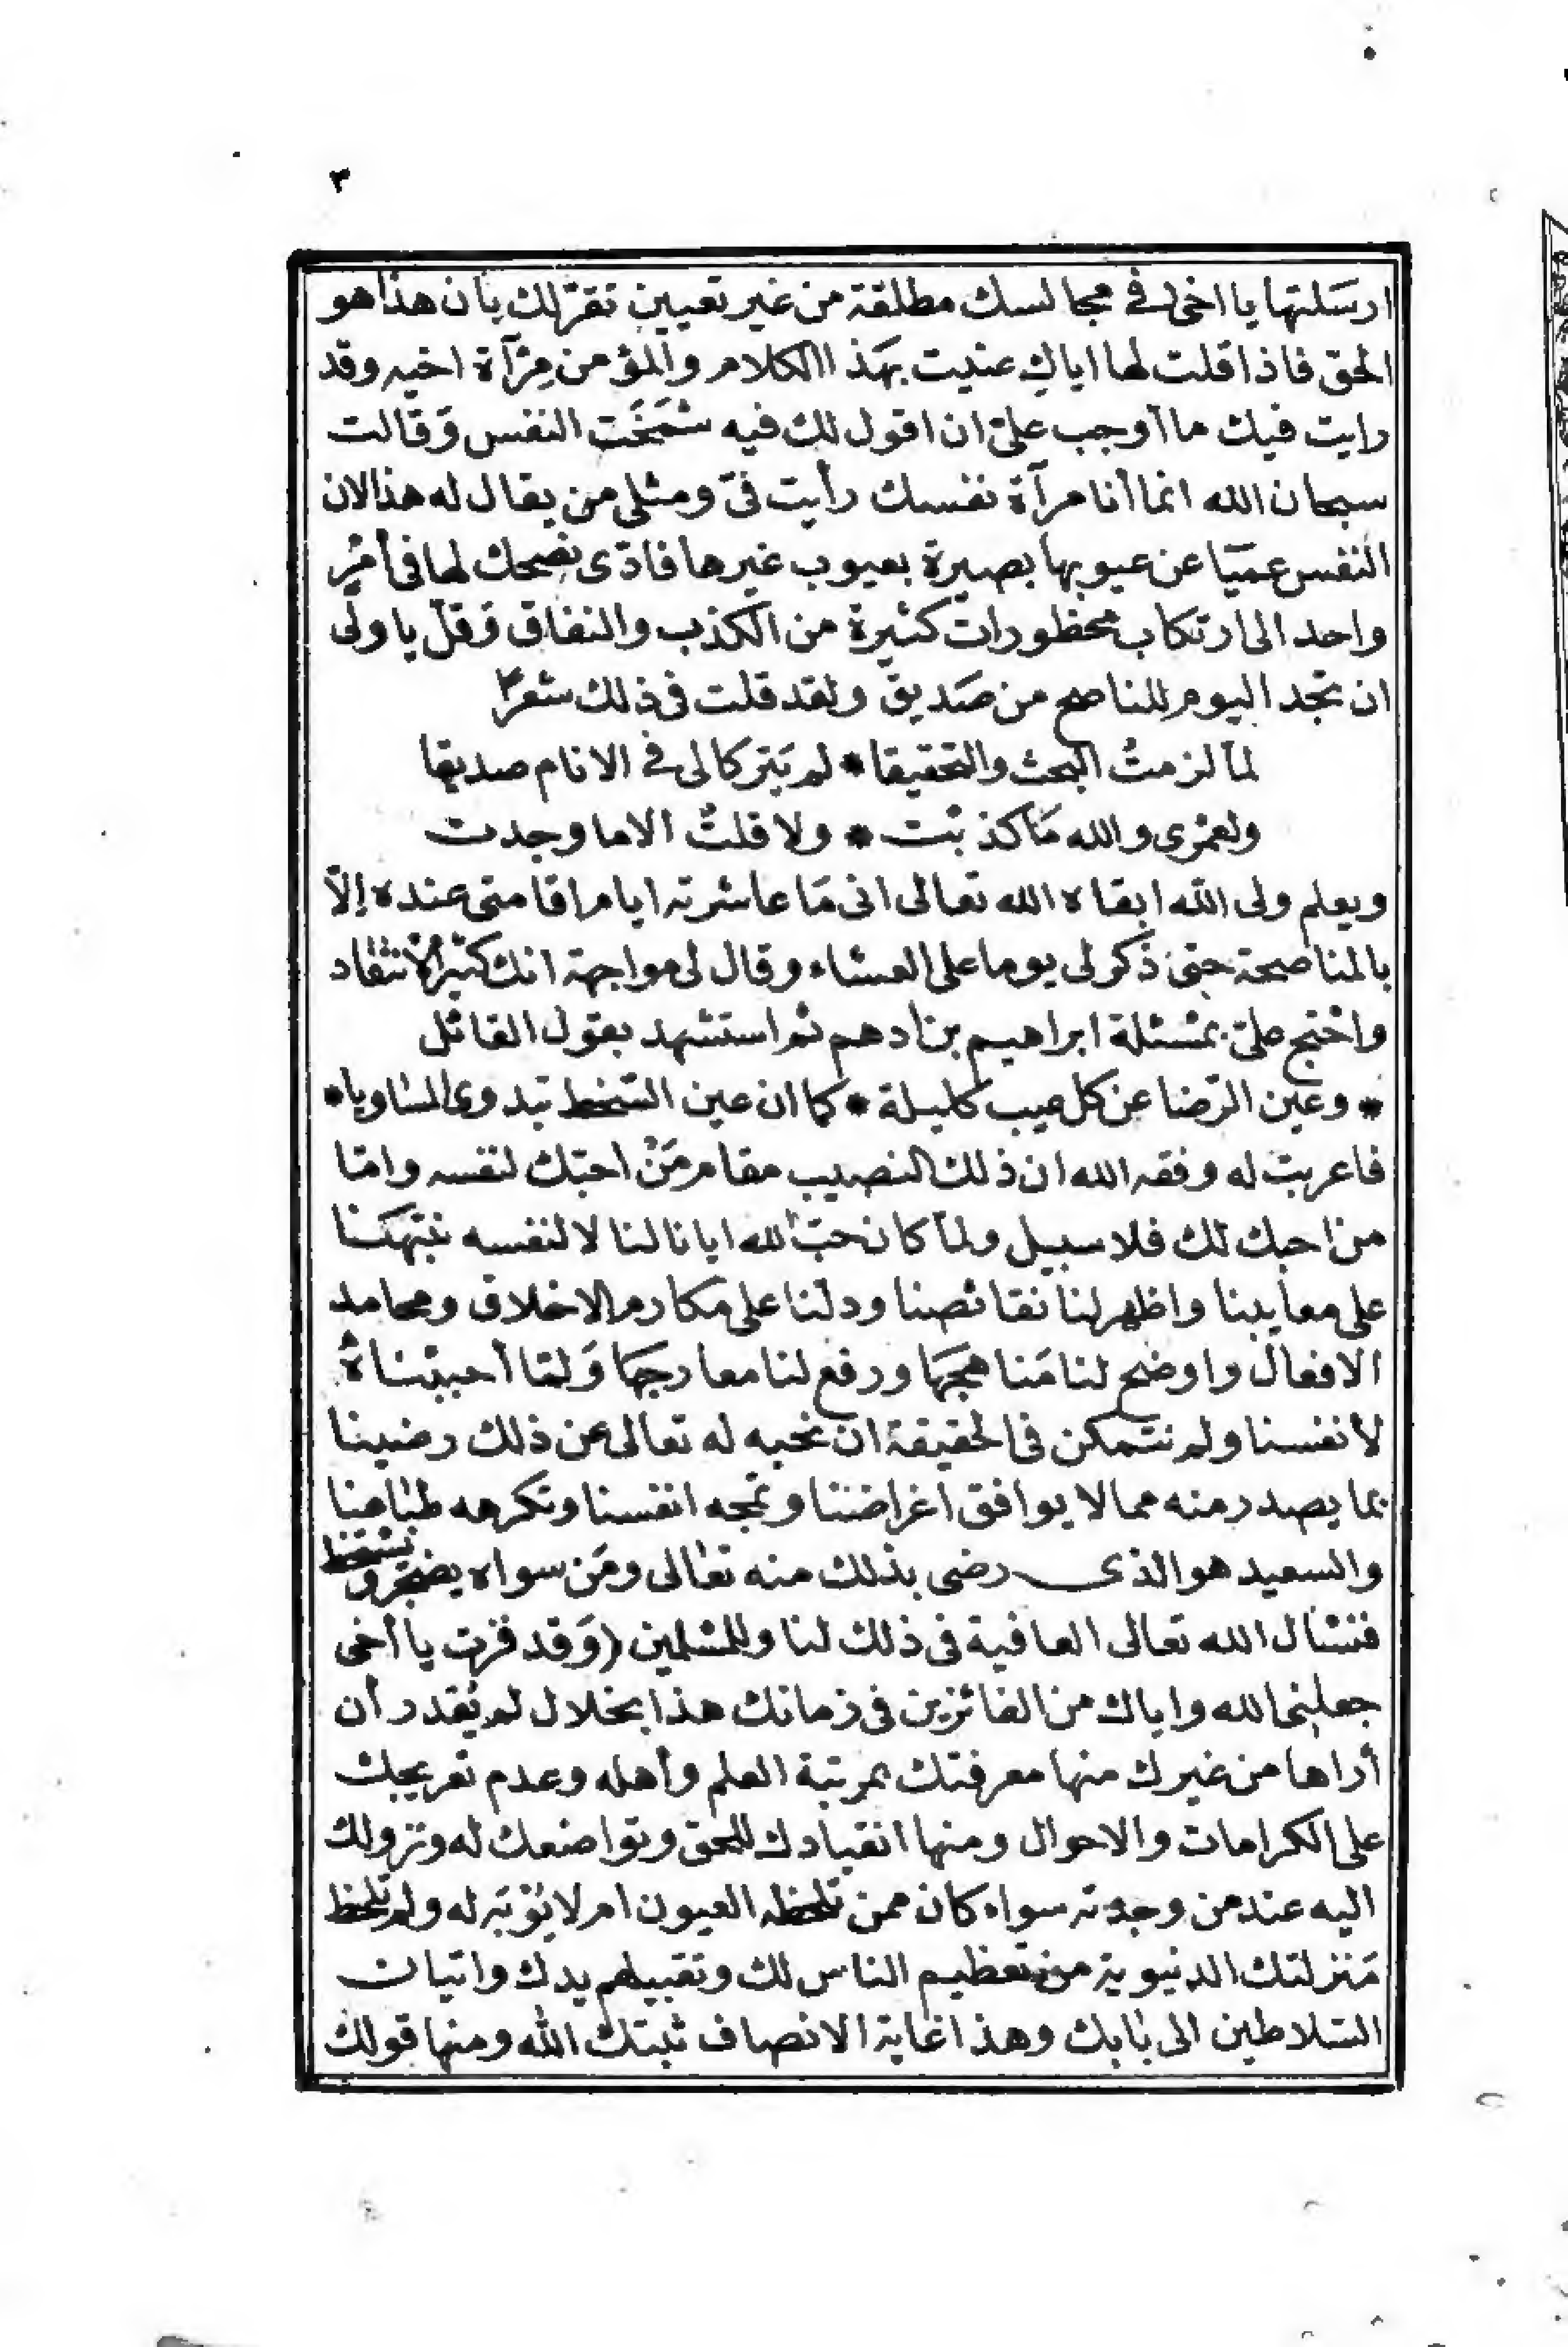 ٣
ارسَلتها يا اخى فى مجالسك مطلقة من غير تعيين تقرّ لك بأن هذا هو
الحق فاذا قلت لها اياكِ عنيت بهَذا الكلام والمؤمن مِرْآة اخيه وقد
رايت فيك ما أوجب علىّ ان اقول لك فيه شمَخَت النفس وَقالت
سبحان الله انما أنا مرآة نفسك رأيت فىّ ومثلى من يقال له هذا لان
النفس عميَا عن عيوبها بصيرة بعيوب غيرها فادّى نصحك لها فى أمْر
واحد الى ارتكاب محظورات كثيرة من الكذب والنفاق وَقلّ يا ولى
ان تجد اليوم للناصح من صَديق ولقد قلت فى ذلك شعرًا
لمّا لزمتُ البحث والتحقيقا * لم يَتركا لى فى الانام صديقا
ولعمْرى والله مَا كذبْت * ولا قلتُ الا ما وجدت
ويعلم ولى الله ابقاه الله تعالى انى مَا عاشرته ايام اقامتى عنده إلاّ
بالمناصحة حتى ذكر لى يوما على العشاء وقال لى مواجهة انك كثير الأنتقاد
واحْتج علىّ بمسْئلة ابراهيم بن أدهم ثم استشهد بقول القائل
* وعين الرّضا عن كل عيب كليلة * كما ان عين السّخط تبدى المساويا *
فاعربت له وفقه الله ان ذلك النصيب مقام مَنْ احبّك لنفسه وامّا
من احبك لك فلا سبيل ولمّا كان حبّ الله ايانا لنا لا لنفسه نبّهَنا
على معايبنا واظهر لنا نقائصنا ودلّنا على مكارم الاخلاق ومحامد
الافعال واوضح لنا مَناهجهَا ورفع لنا معارجهَا وَلمّا أحببْناهُ
لأنفسنا ولم نتمكن فى الحقيقة ان نحبه له تعالى عن ذلك رضينا
بما يصدر منه مما لا يوافق اغراضنا وتمجه انفسنا وتكرهه طباعنا
والسعيد هو الذى رضى بذلك منه تعالى ومَن سواه يضجر ويتسخط
فنسْأل الله تعالى العافية فى ذلك لنا وللمسْلمين (وَقد فزت يا أخى
جعلنى الله واياك من الفائزين فى زمانك هذا بخلال لم يُقدر أن
أراها من غيرك منها معرفتك بمرتبة العلم وأهله وعدم تعريجك
على الكرامات والاحوال ومنها انقيادك للحق وتواضعك له ونزولك
اليه عند من وجدته سواء كان ممن تلحظه العيون ام لا يُؤبَه له ولم تلحظ
مَنزلتك الدنيوية من تعظيم الناس لك وتقبيلهم يدك واتيان
السّلاطين الى بابك وهذا غاية الانصاف ثبتك الله ومنها قولك